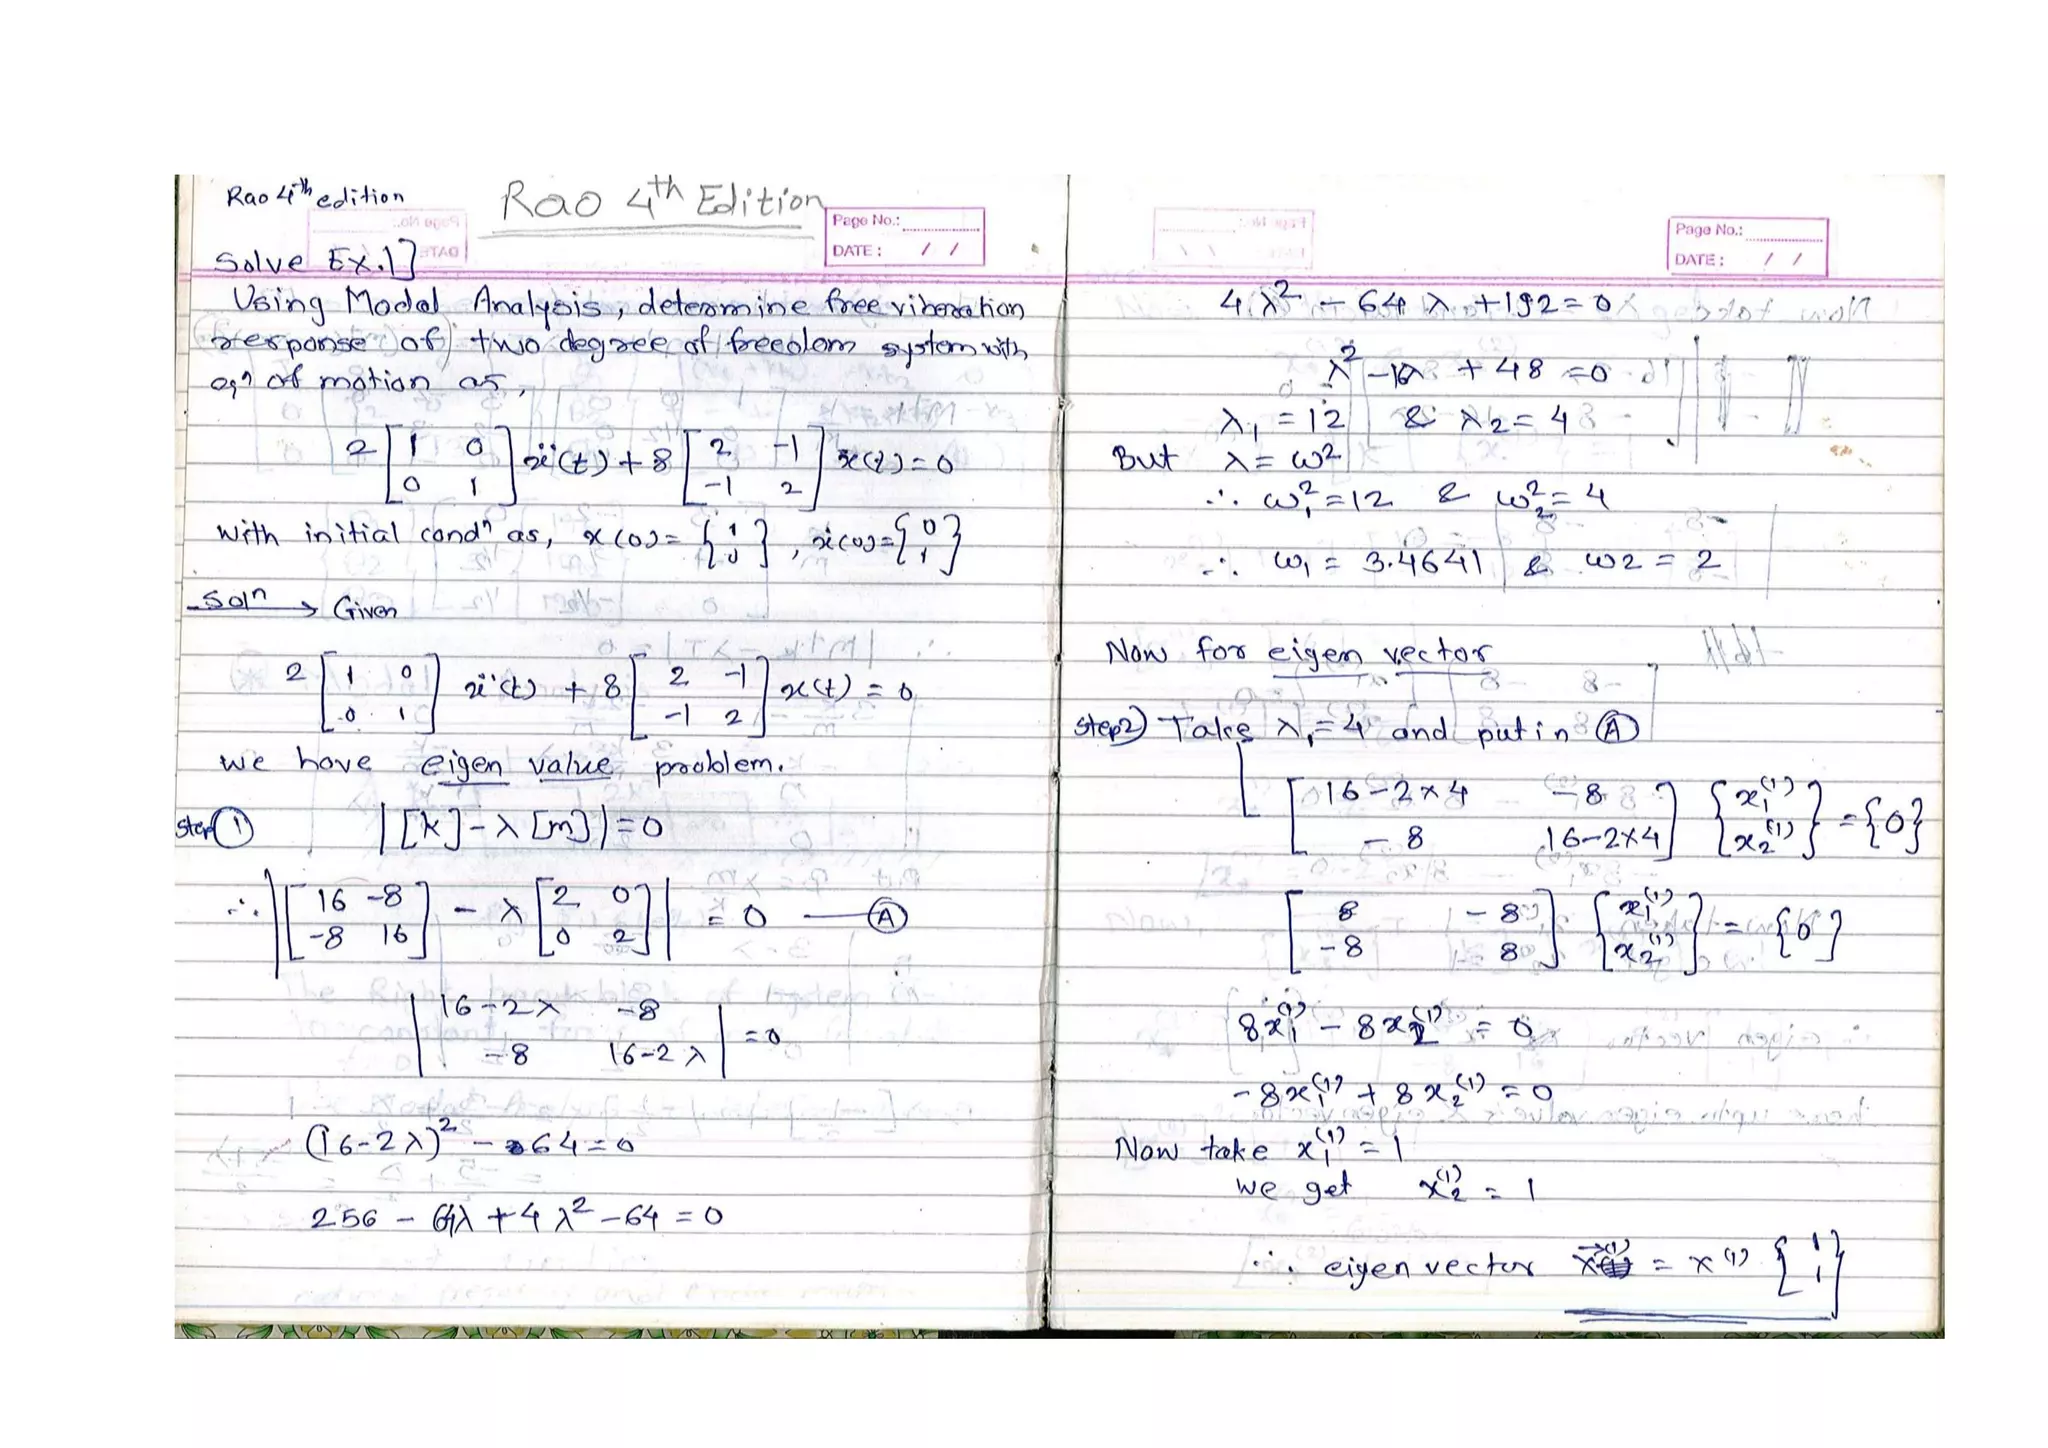 Rao 4th edition
Rao 4th Edition
Page No.:
DATE : / /
Solve Ex.1]
Using Modal Analysis, determine free vibration
response of two degree of freedom system with
eqn of motion as,
2 [1 0; 0 1] ẍ(t) + 8 [2 -1; -1 2] x(t) = 0
with initial condn as, x(0) = {1; 0}, ẋ(0) = {0; 1}
Soln → Given
2 [1 0; 0 1] ẍ(t) + 8 [2 -1; -1 2] x(t) = 0
we have eigen value problem.
Step ① |[k] - λ [m]| = 0
∴ |[16 -8; -8 16] - λ [2 0; 0 2]| = 0 — Ⓐ
|16-2λ -8; -8 16-2λ| = 0
(16-2λ)² - 64 = 0
256 - 64λ + 4λ² - 64 = 0
Page No.:
DATE : / /
4λ² - 64λ + 192 = 0
λ² - 16λ + 48 = 0
λ₁ = 12 & λ₂ = 4
But λ = ω²
∴ ω₁² = 12 & ω₂² = 4
∴ ω₁ = 3.4641 & ω2 = 2
Now for eigen vector
Step2) Take λ₁ = 4 and put in Ⓐ
[16-2×4 -8; -8 16-2×4] {x₁⁽¹⁾; x₂⁽¹⁾} = {0}
[8 -8; -8 8] {x₁⁽¹⁾; x₂⁽¹⁾} = {0}
8x₁⁽¹⁾ - 8x₂⁽¹⁾ = 0
-8x₁⁽¹⁾ + 8x₂⁽¹⁾ = 0
Now take x₁⁽¹⁾ = 1
we get x₂⁽¹⁾ = 1
∴ eigen vector X⃗⁽¹⁾ = x⁽¹⁾ {1; 1}